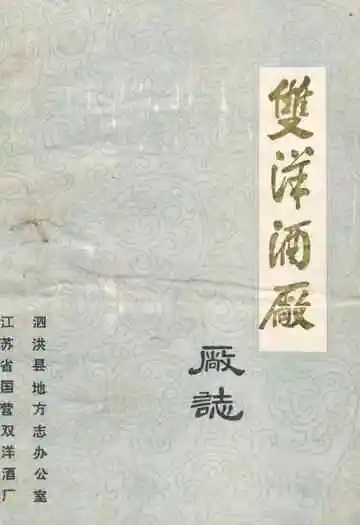 雙洋酒廠
廠誌
泗洪县地方志办公室
江苏省国营双洋酒厂